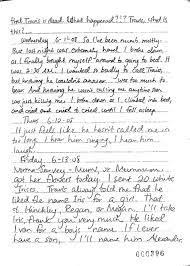 that Travis is dead. What happened?!? Travis, what is
this?
Wednesday 6-11-08 So I've been numb mostly.
But last night was extremely hard. I broke down
as I finally brought myself around to going to bed. It
was 2:30 AM. I wanted so badly to call Travis,
but knowing he couldn't answer was too much to
bear. And knowing he wasn't calling me anytime soon
was just killing me. I broke down as I climbed into bed,
and cried and cried and cried until I fell asleep.
Thurs. 6-12-08
It just feels like he hasn't called me in
too long. I hear him singing, I hear him
laugh.
Friday 6-13-08
Mum
got her flowers today. I sent 20 white
Irises. Travis always told me that he
liked the name Iris for a girl. That
or Hinckley, Regan, or I'll take
Irish, thank you very much. He liked
Ivan for a boys' name. If I ever
have a son, I'll name him Alexander.
000396